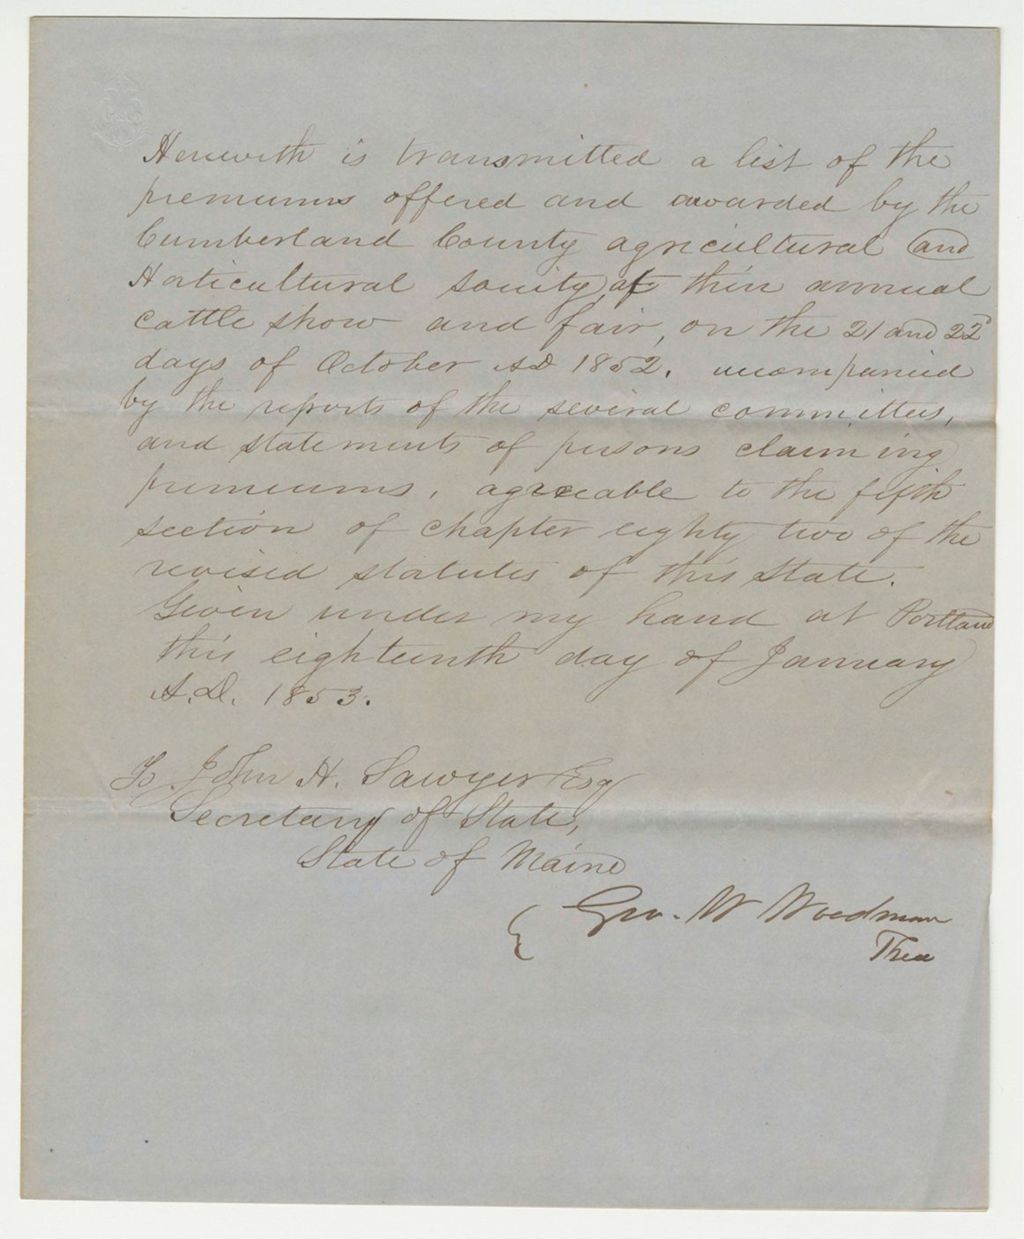 Herewith is transmitted a list of the
premiums offered and awarded by the
Cumberland County agricultural and
Horticultural Society, at their annual
cattle show and fair, on the 21 and 22d
days of October AD 1852. accompanied
by the reports of the several committees,
and statements of persons claiming
premiums, agreeable to the fifth
section of chapter eighty two of the
revised statutes of this State.
Given under my hand at Portland
this eighteenth day of January
A.D. 1853.
To John H. Sawyer Esq
Secretary of State,
State of Maine
Geo. W Woodman
Trea